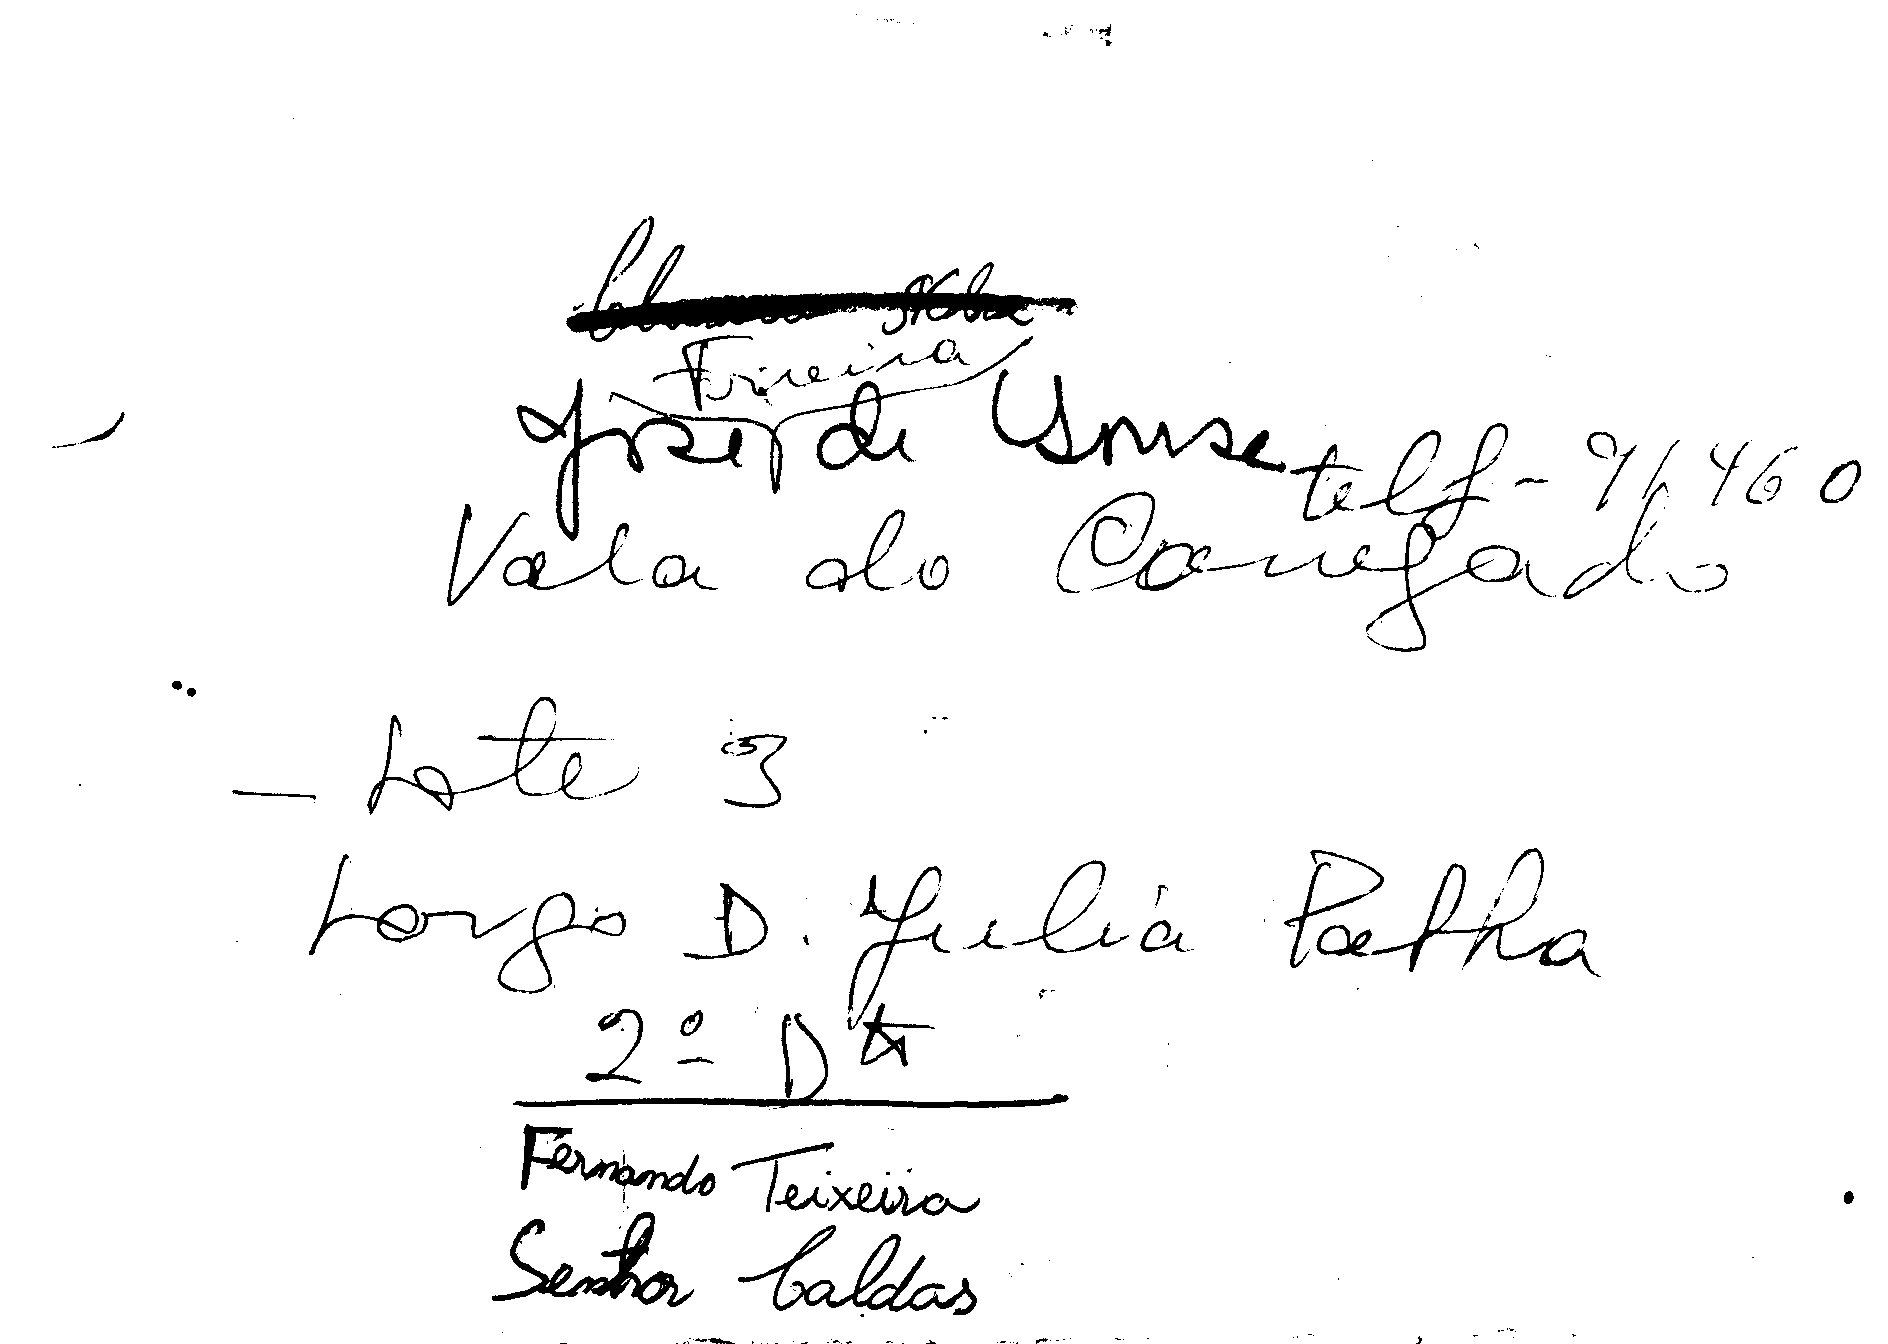 Teixeira
José de Sousa
telf - 91460
Vala do Carregado
- Lote 3
Largo D. Julia Palha
2º Dt
Fernando Teixeira
Senhor Caldas